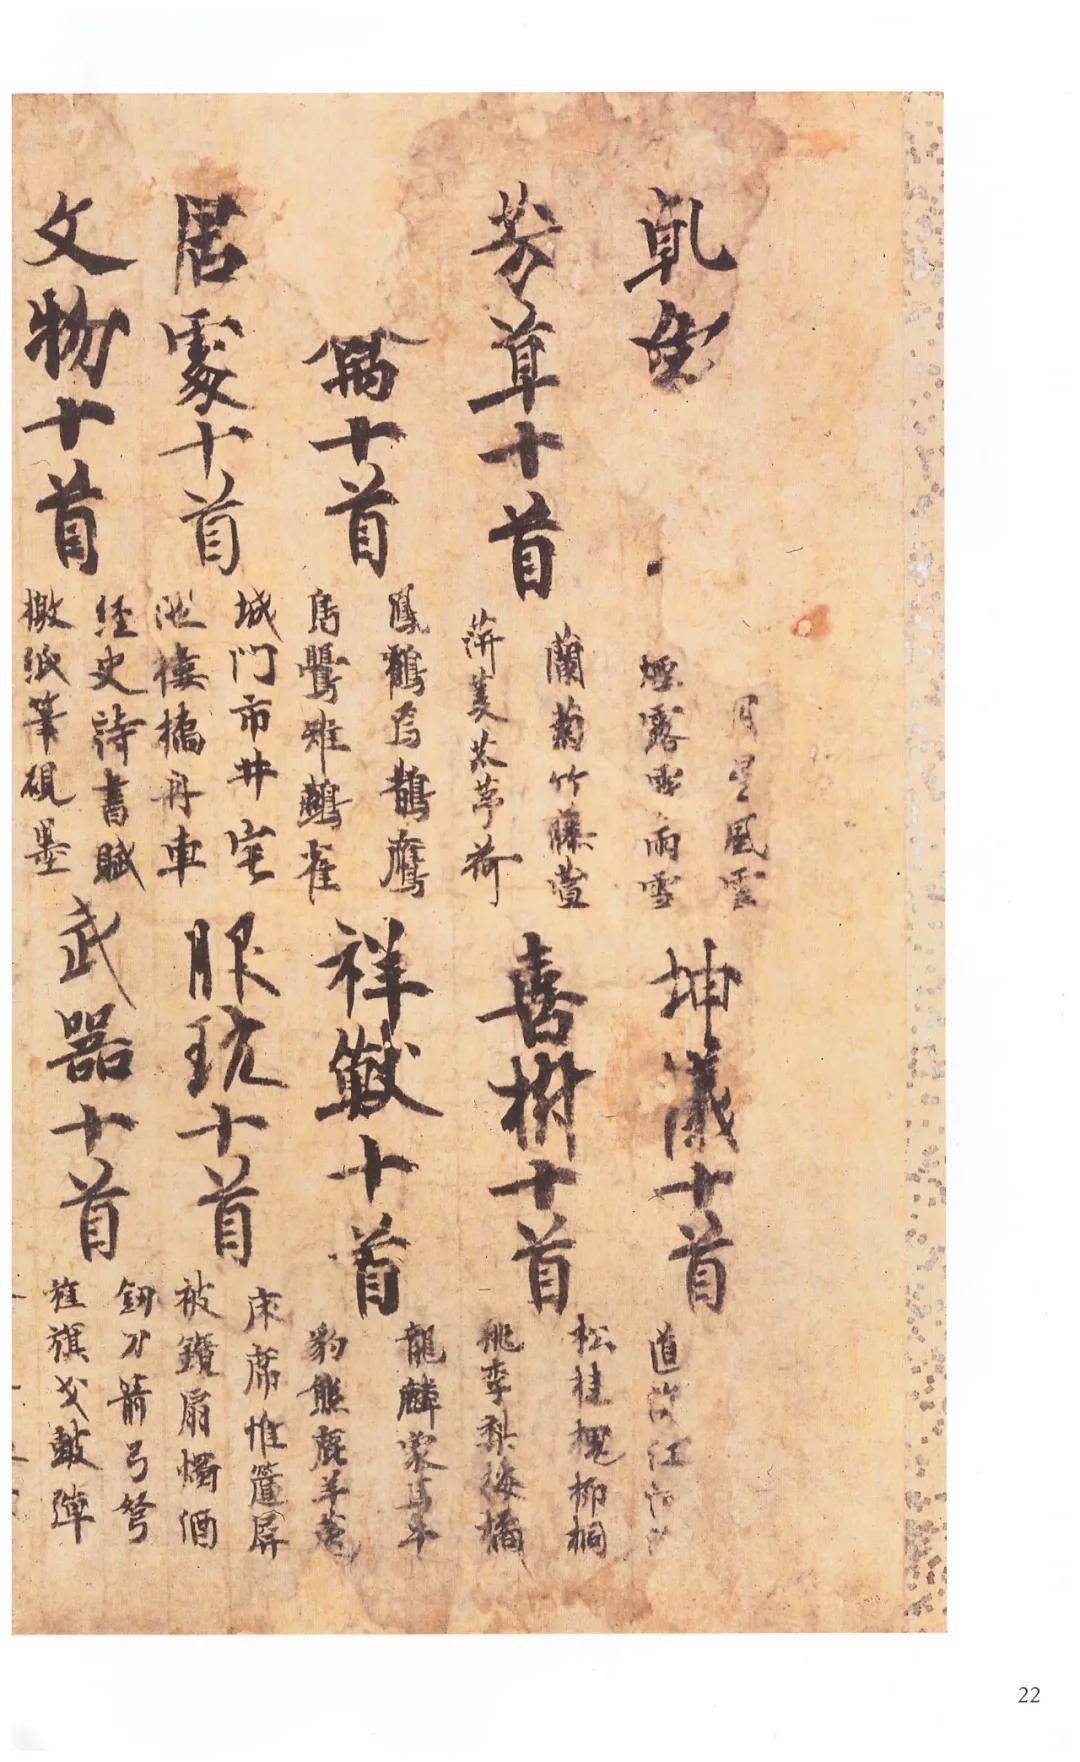 乹
月星風雲
煙露霧雨雪
坤儀十首
道江
芳草十首
蘭菊竹藤萱
萍菱茨茅荷
嘉樹十首
松桂槐柳桐
桃李梨梅橘
禽十首
鳳鶴烏鵲鷹
鳧鸎雉鷰雀
祥獸十首
龍麟象馬牛
豹熊鹿羊兔
居處十首
城門市井宅
池樓橋舟車
服玩十首
床席帷簾屏
被鏡扇燭酒
文物十首
經史詩書賦
檄紙筆硯墨
武器十首
釼刀箭弓弩
旌旗戈鼓弾
22